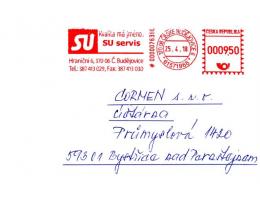 Kvalita má jméno.
SU SU servis
Hraniční 6, 370 06 Č. Budějovice
Tel.: 387 413 029, Fax: 387 413 010
25. 4. 18
ČESKÁ REPUBLIKA
000950
CORMEN s. r. o.
Průmyslová 1420
593 01 Bystřice nad Pernštejnem